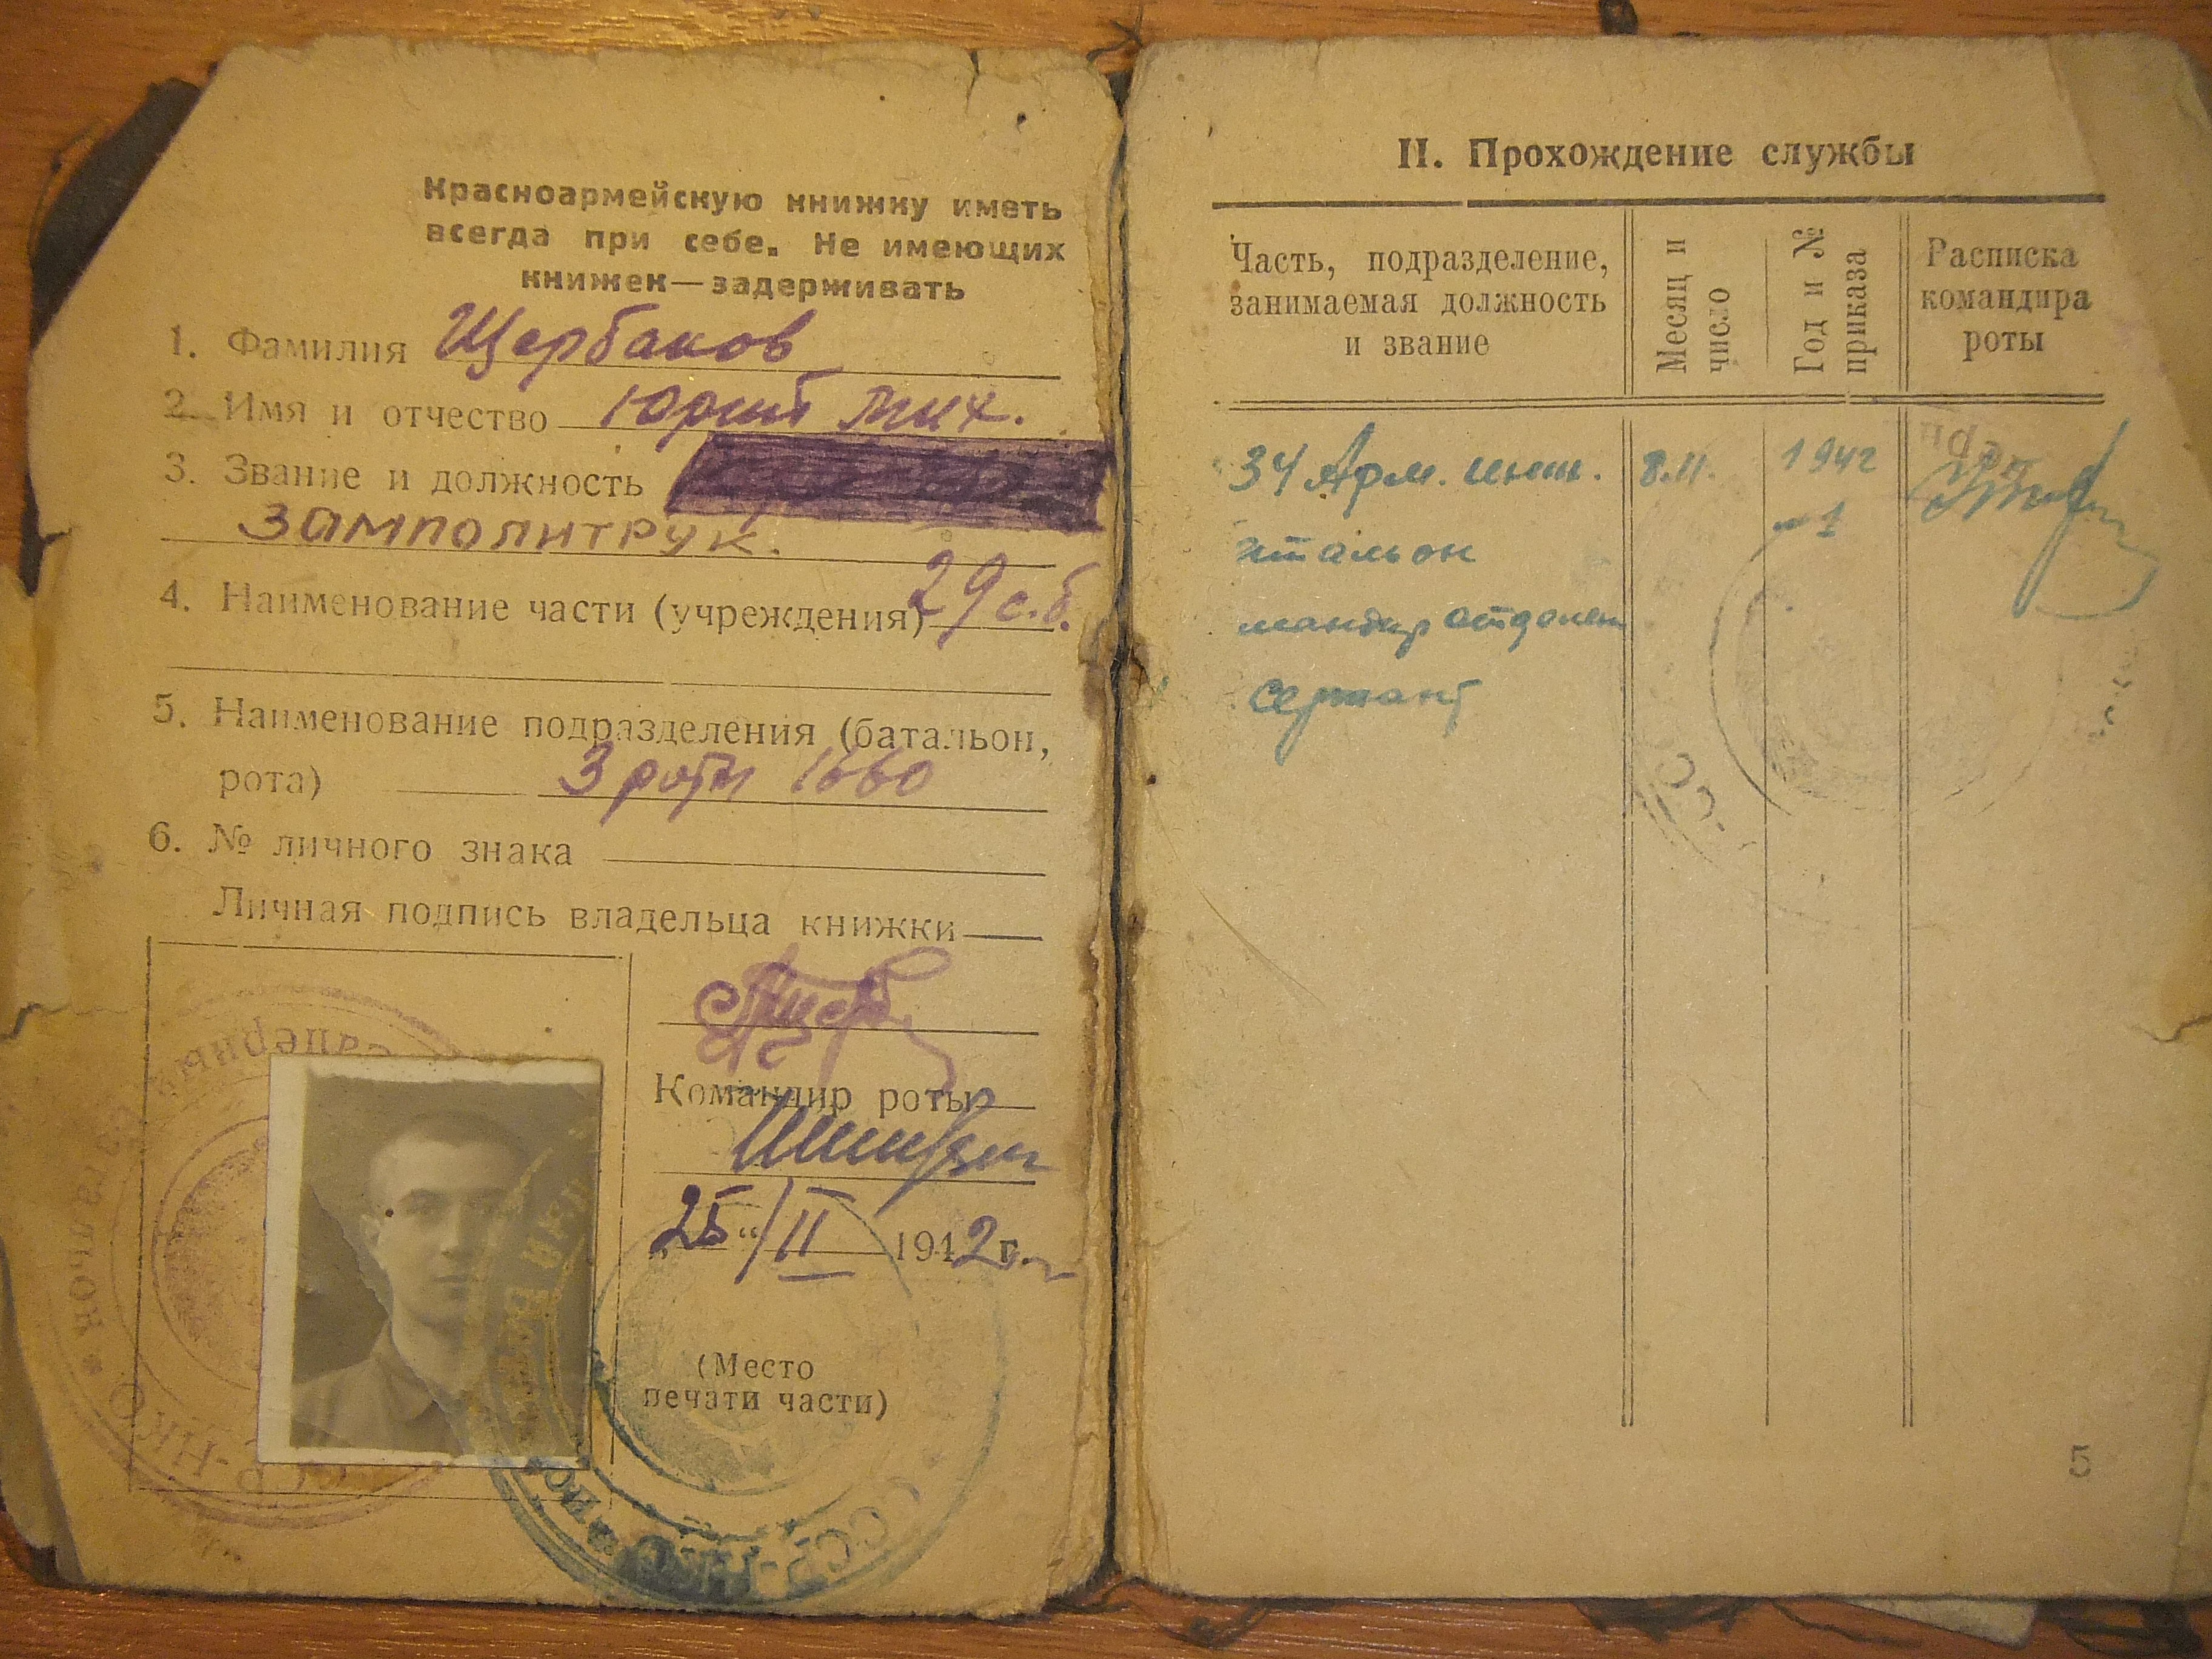 Красноармейскую книжку иметь
всегда при себе. Не имеющих
книжек—задерживать
1. Фамилия Щербаков
2. Имя и отчество Юрий Мих.
3. Звание и должность
замполитрук.
4. Наименование части (учреждения) 29 с.б.
5. Наименование подразделения (батальон,
рота) 3 роты
6. № личного знака
Личная подпись владельца книжки
Командир роты
„25“/II 1942 г.
(Место
печати части)
саперный
батальон
ССР-НКО
ССР-НКО
II. Прохождение службы
Часть, подразделение,
занимаемая должность
и звание
Месяц и
число
Год и №
приказа
Расписка
командира
роты
34 Арм. инж. 8.II. 1942
№1
тальон
мандир отделен
сержант
5